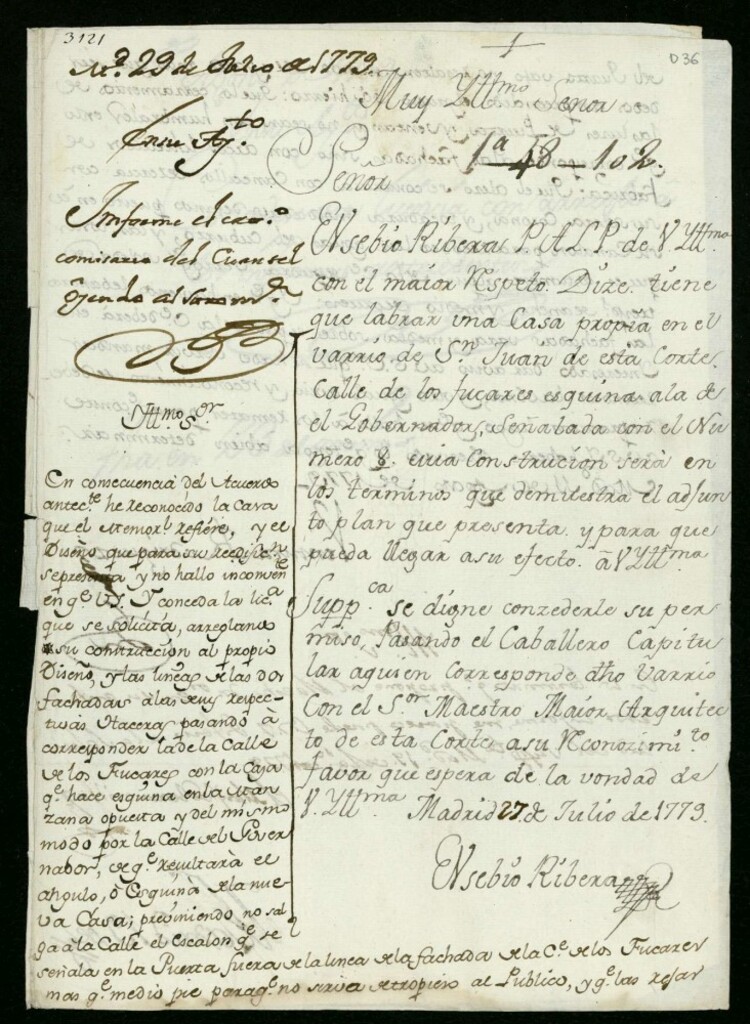 3121
D36
M.d 29 de Julio de 1779.
En su Ay.to
Informe el cav.o
comisario del Cuartel
oyendo al Varo m.r
Muy Ytt.mo Señor
1a 48 - 102.
Señor
Eusebio Ribera P. A. L. P. de V. Ytt.ma
con el maior Respeto. Dize. tiene
que labrar una Casa propia en el
varrio de S.n Juan de esta Corte.
Calle de los fucares esquina a la de
el Gobernador, Señalada con el Nu
mero 8. cuia Construcion serà en
los terminos que demuestra el adjun
to plan que presenta. y para que
pueda llegar a su efecto. à V Ytt.ma
Supp.ca se digne conzederle su per
miso, Pasando el Caballero Capitu
lar aquien corresponde dho Varrio
Con el S.or Maestro Maior Arquitec
to de esta Corte a su Reconozimi.to
favor que espera de la vondad de
V. Ytt.ma Madrid 27 de Julio de 1779.
Eusebio Ribera
Ytt.mo S.or
En consecuencia del Acuerdo
antec.te he reconocido la Casa
que el Memor.l refiere, y el
Diseño que para su reedific.n
se presenta y no hallo inconven.te
en q.e V.I. conceda la lic.a
que se solicita, arreglano
su construccion al propio
Diseño, y las lineas de las dos
fachadas à las suy respec-
tivas Haceras pasando à
corresponder la de la Calle
de los Fucares con la Casa
q.e hace esquina en la Man
zana opuesta y del mismo
modo por la Calle del Gover
nador, de q.e resultarà el
angulo, ò Esquina de la nue
va Casa; previniendo no sal
ga à la Calle el escalon q.e se
señala en la Puerta fuera de la linea de la fachada de la C.e de los Fucares
mas q.e medio pie para q.e no sirva de tropiezo al Publico, y q.e las rejas